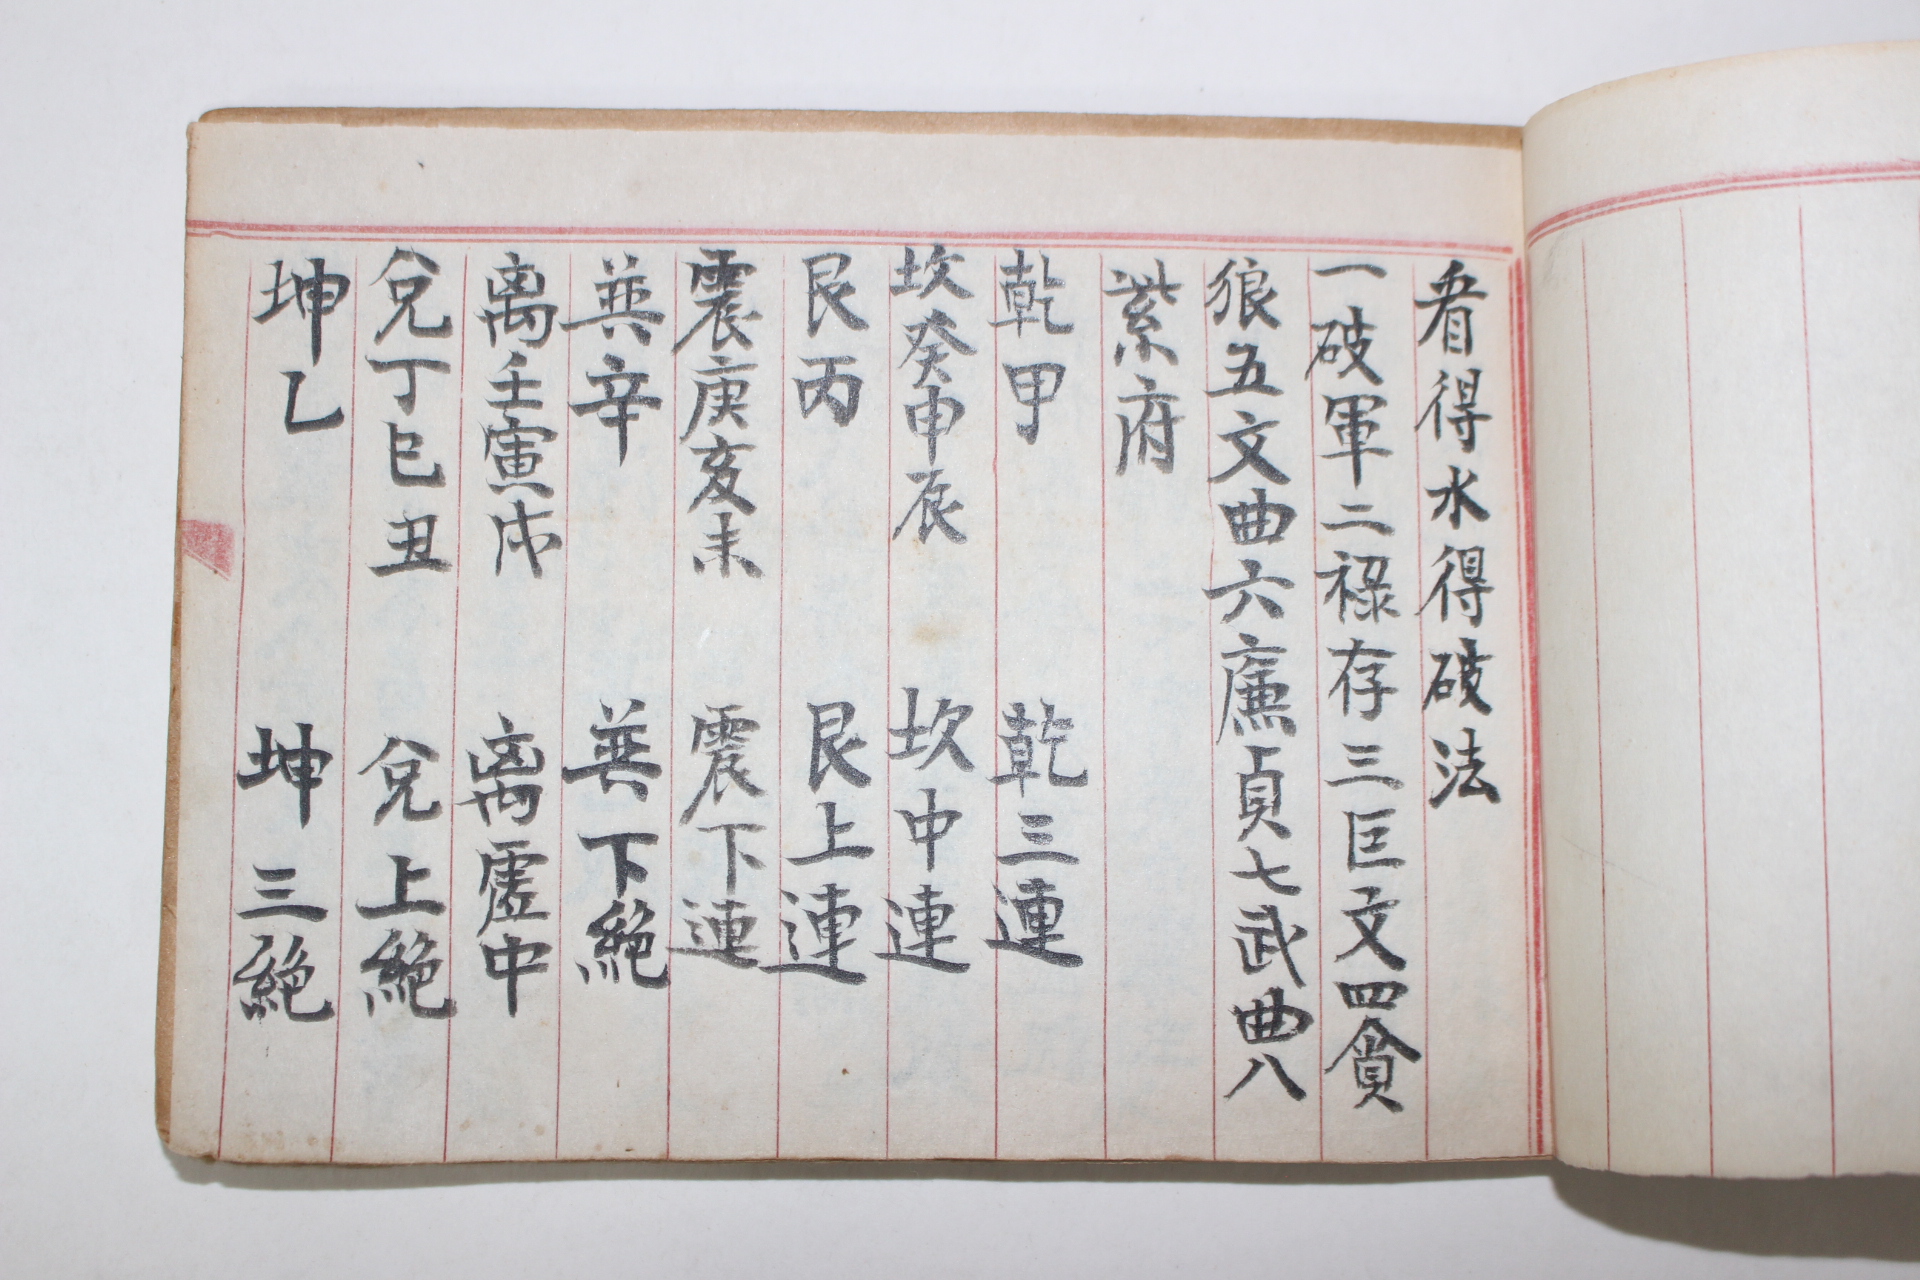 看得水得破法
一破軍二祿存三巨文四貪
狼五文曲六廉貞七武曲八
紫府
乾甲 乾三連
坎癸申辰 坎中連
艮丙 艮上連
震庚亥未 震下連
巽辛 巽下絕
离壬寅戌 离虛中
兌丁巳丑 兌上絕
坤乙 坤三絕